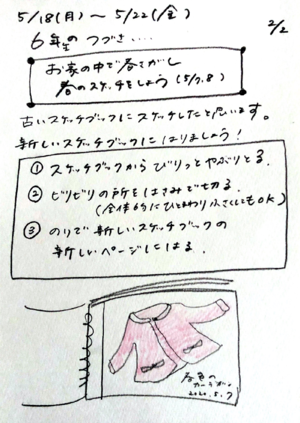 5/18(月)～5/22(金)
2/2
6年生のつづき....
お家の中で春さがし
春のスケッチをしよう(5/7.8)
古いスケッチブックにスケッチしたと思います。
新しいスケッチブックにはりましょう!
① スケッチブックからびりっとやぶりとる.
② ビリビリの所をはさみで切る.
(全体的にひとまわり小さくしてもOK)
③ のりで新しいスケッチブックの
新しいページにはる.
春色の
カーディガン
2020.5.7